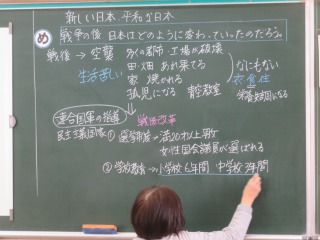 新しい日本 平和な日本
め 戦争の後 日本はどのように変わっていったのだろう。
戦後 → 空襲 多くの都市・工場が破壊
生活苦しい 田・畑 あれ果てる なにもない
家 焼かれる 衣食住
孤児になる 青空教室
連合国軍の指導 戦後改革
民主主義国家 ① 選挙制度→満20才以上男女
女性国会議員が選ばれる
② 学校教育→小学校6年間 中学校3年間